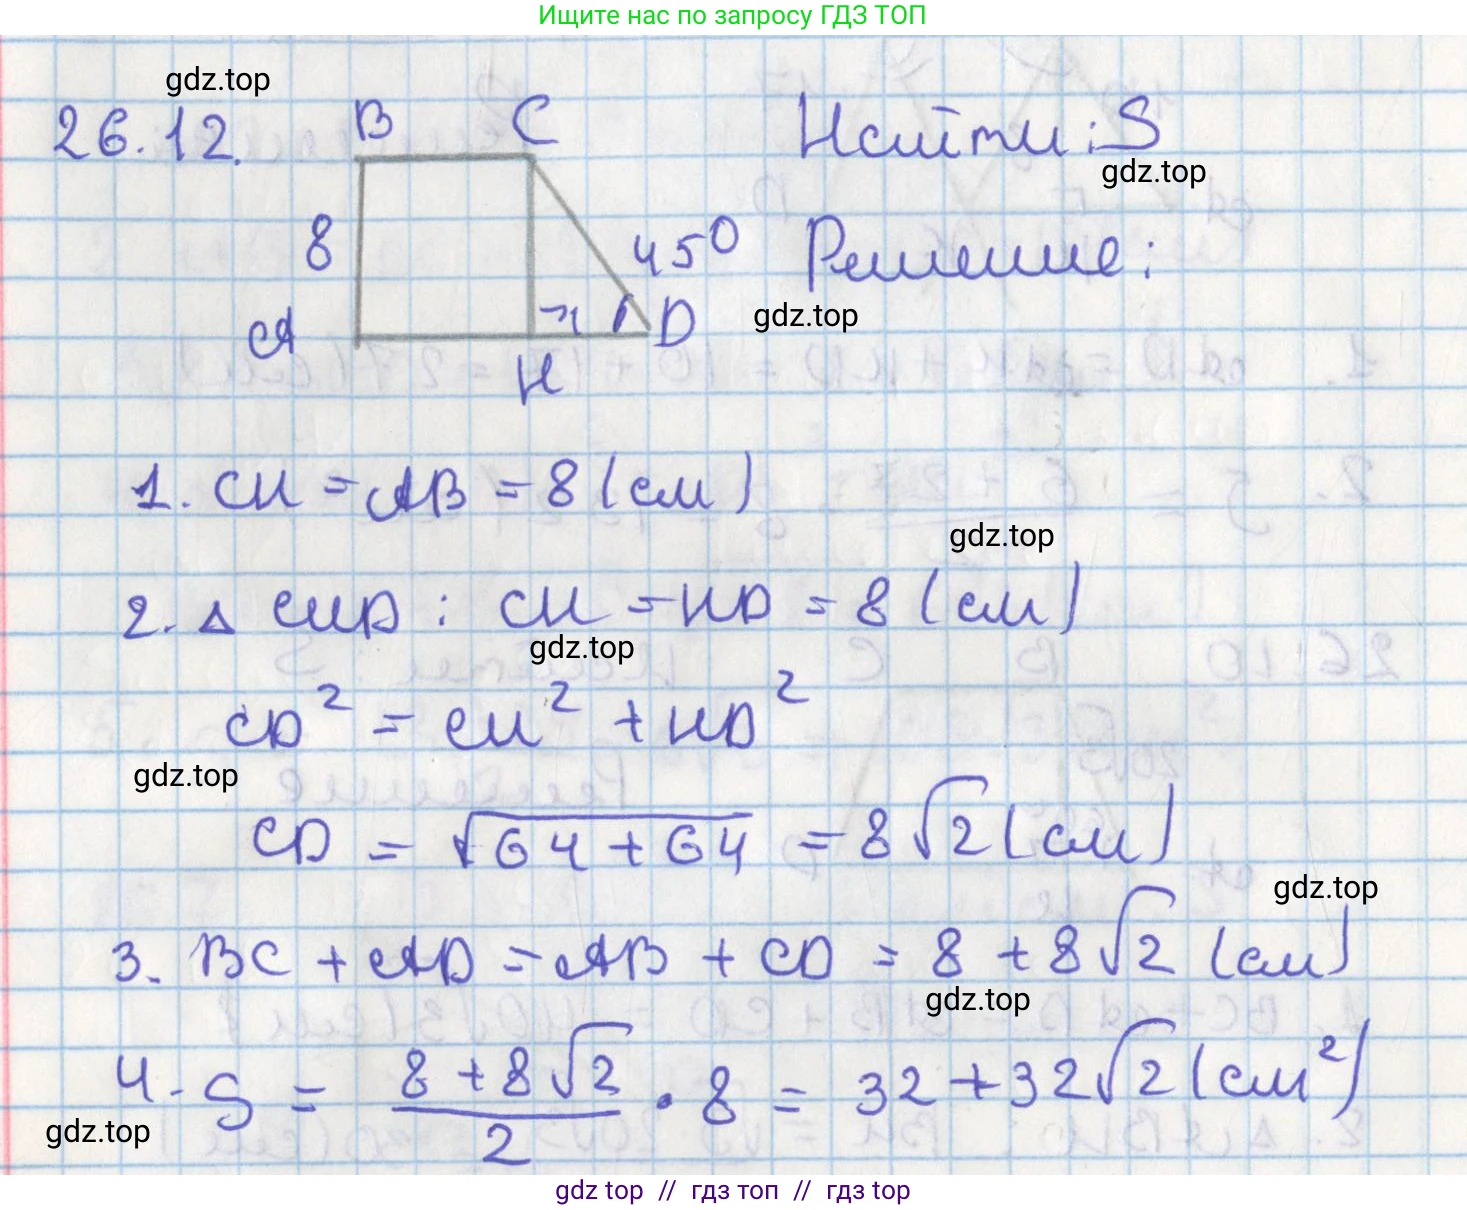 Ищите нас по запросу ГДЗ ТОП
gdz.top
26.12.
B C
Найти: S
gdz.top
8
45°
Решение:
A
H
D
gdz.top
1. CH = AB = 8 (см)
gdz.top
2. △ CHD : CH = HD = 8 (см)
gdz.top
CD² = CH² + HD²
gdz.top
CD = √64 + 64 = 8√2 (см)
gdz.top
3. BC + AD = AB + CD = 8 + 8√2 (см)
gdz.top
4. S = (8 + 8√2)/2 · 8 = 32 + 32√2 (см²)
gdz.top
gdz top // гдз топ // гдз top